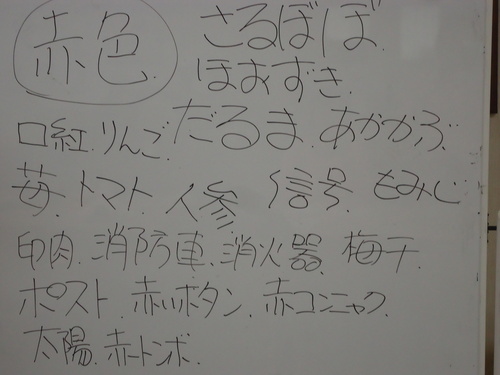 赤色.
さるぼぼ.
ほおずき.
口紅.りんご.だるま.あかかぶ.
苺.トマト.人参.信号.もみじ
印肉.消防車.消火器.梅干.
ポスト.赤いボタン.赤コンニャク.
太陽.赤トンボ.